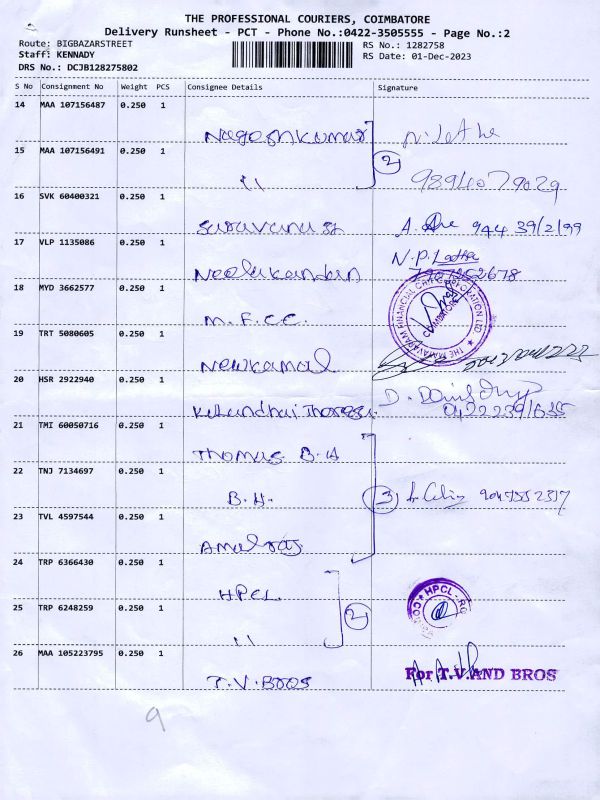 THE PROFESSIONAL COURIERS, COIMBATORE
Delivery Runsheet - PCT - Phone No.:0422-3505555 - Page No.:2
Route: BIGBAZARSTREET
RS No.: 1282758
Staff: KENNADY
RS Date: 01-Dec-2023
DRS No.: DCJB128275802
S No Consignment No Weight PCS Consignee Details Signature
14 MAA 107156487 0.250 1
Nageshkumar
15 MAA 107156491 0.250 1
2
"
9894079029
16 SVK 60400321 0.250 1
A. 944 39/2/99
17 VLP 1135086 0.250 1
N.P. Latha
Neelakandan
18 MYD 3662577 0.250 1
THE MAYAVARAM FINANCIAL CHIT CORPORATION LTD.
COIMBATORE
M.F.C.C.
19 TRT 5080605 0.250 1
Newkamal
20 HSR 2922940 0.250 1
D.
21 TMI 60050716 0.250 1
Thomas B.H
22 TNJ 7134697 0.250 1
B.H.
3
23 TVL 4597544 0.250 1
Amalraj
24 TRP 6366430 0.250 1
HPCL
HPCL - RO
25 TRP 6248259 0.250 1
2
"
26 MAA 105223795 0.250 1
For T.V.AND BROS
T.V.BROS
9